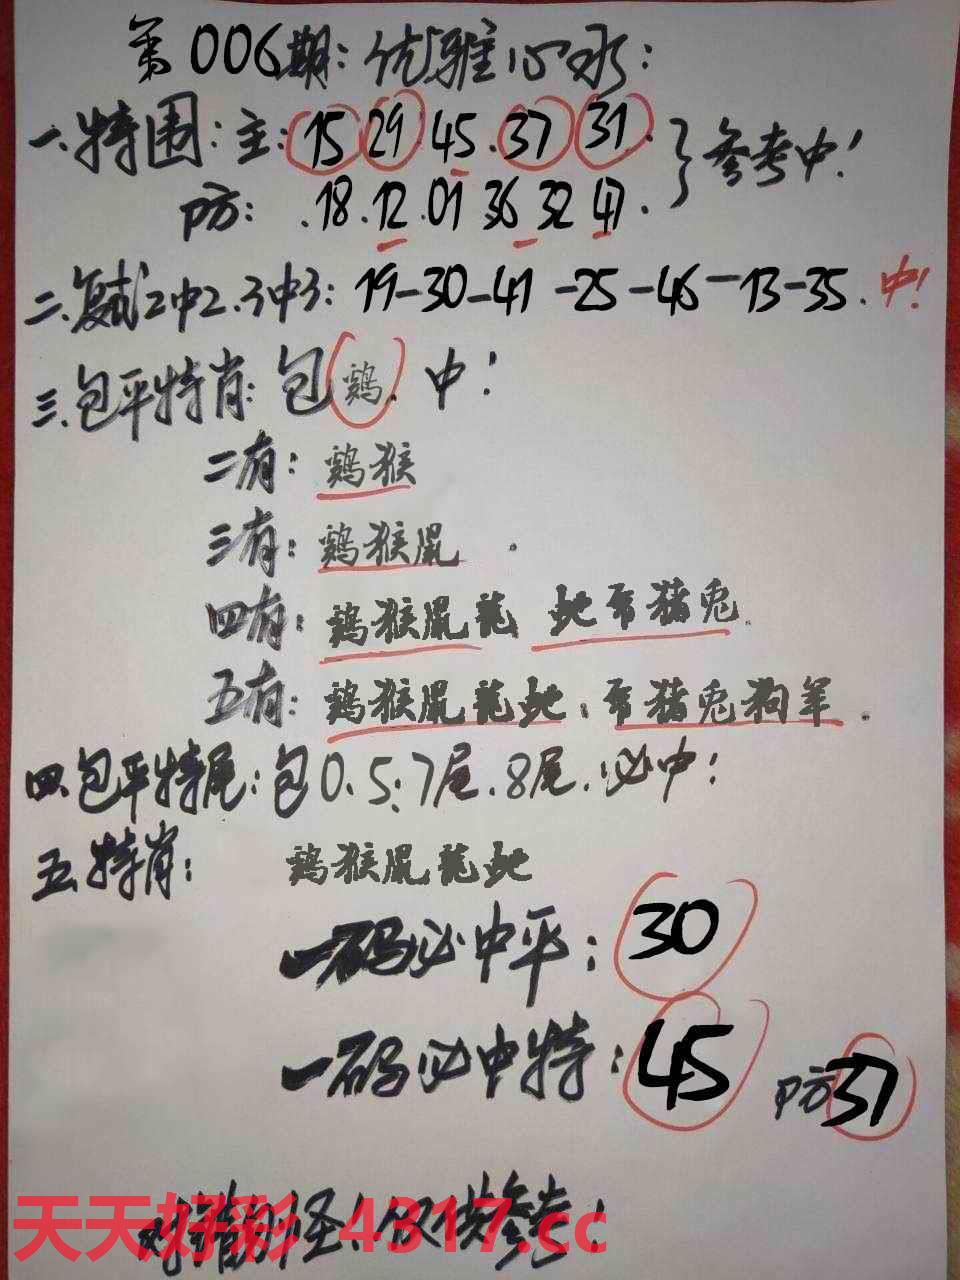 第006期:优雅心水:
一.特围:主:15 29 45.37 31.}参考中!
防:.18.12.01 36 32 47.
二.复试2中2.3中3:19-30-41-25-46-13-35.中!
三.包平特肖:包鸡.中!
二有:鸡猴
三有:鸡猴鼠.
四有:鸡猴鼠龍 蛇马猪兔.
五有:鸡猴鼠龍蛇:马猪兔狗羊.
四.包平特尾:包0.5:7尾.8尾.必中!
五.特肖:鸡猴鼠龍蛇
一码必中平:30
一码必中特:45 防37
对错勿怪!仅供参考!
天天好彩 4317.cc